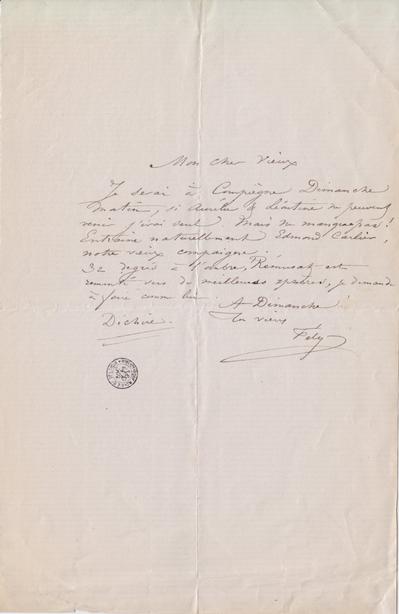 Mon cher vieux
Je serai à Compiègne Dimanche
matin, si Aurélie & Léontine ne peuvent
venir j'irai seul. Mais ne manque pas!
Entraine naturellement Edmond Carlier,
notre vieux compaigne;
32 degrés à l'ombre, est
vers de meilleures, je demande
à faire comme lui. A Dimanche!
Déchire. Ton vieux
Fély